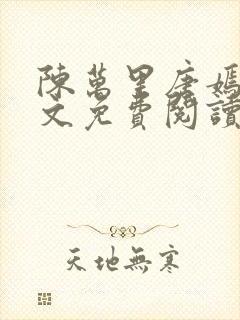 陳萬里唐嫣
文免費閱讀
天地無寒